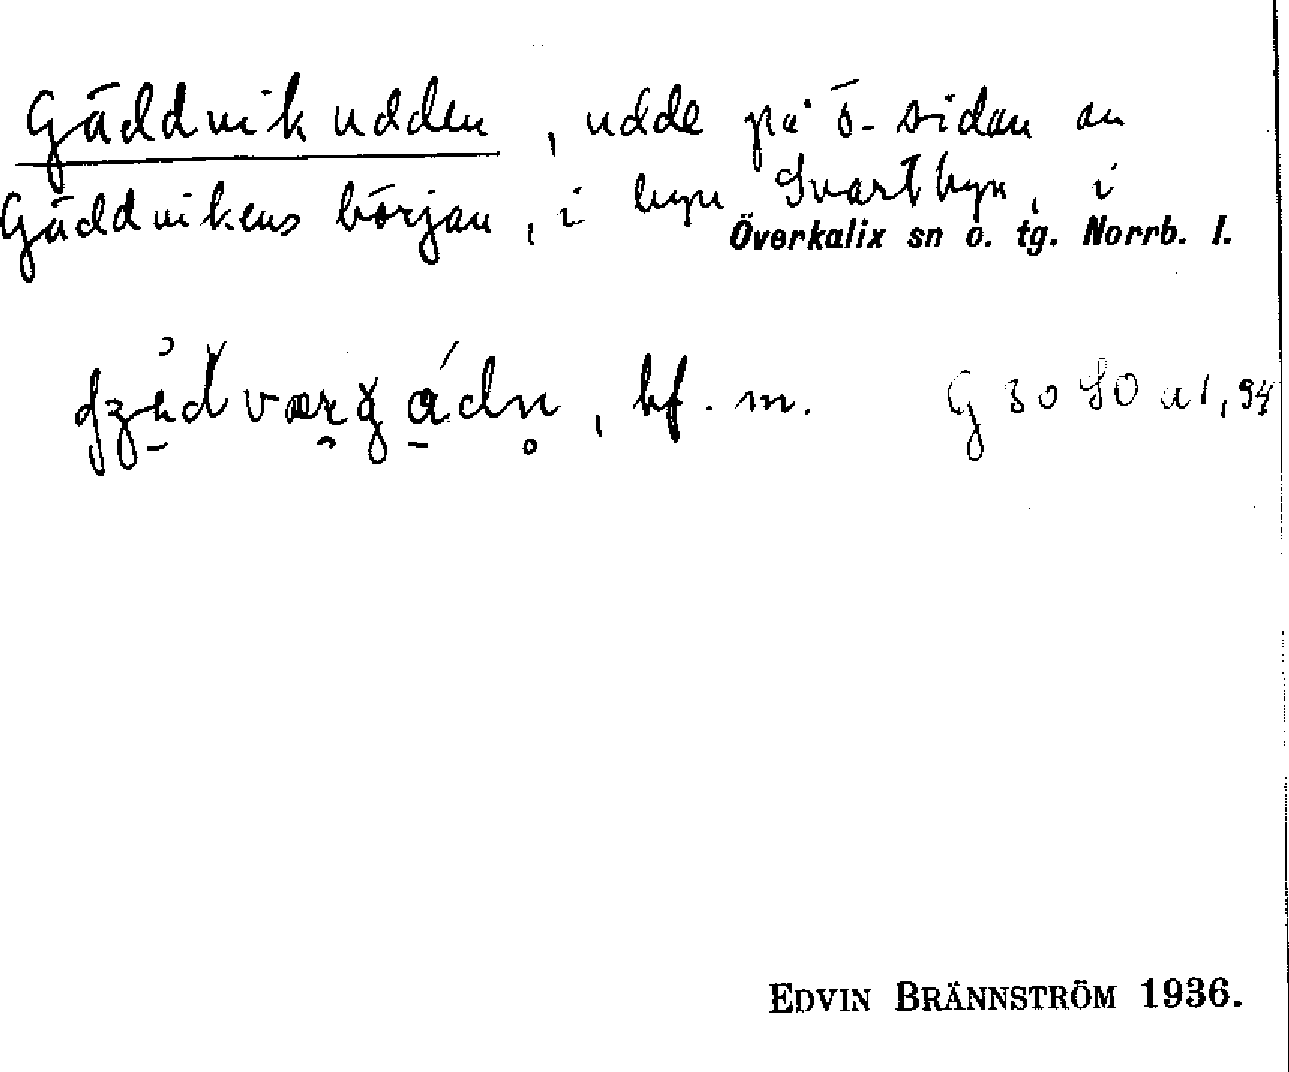 Gäddvikudden, udde på ö-sidan av
Gäddvikens början, i byn Svartbyn, i
Överkalix sn o. tg. Norrb. l.
, bf. m. G 3080 a1, 94
EDVIN BRÄNNSTRÖM 1936.